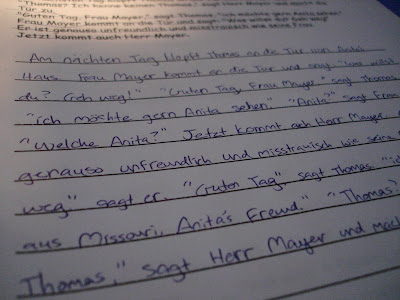 "Thomas? Ich komme
"Guten Tag, Frau Mayer," sagt Thomas. "Ich möchte gern Anita sehen."
Frau Mayer die Tür und sagt: "Was willst du? Geh weg!"
Er ist genauso unfreundlich und misstrauisch wie seine Frau.
Jetzt kommt auch Herr Mayer.
Am nächsten Tag klopft Thomas an die Tür von
Haus. Frau Mayer kommt an die Tür und sag "was willst
du? Geh weg!" "Guten Tag, Frau Mayer," sagt Thomas.
"ich möchte gern Anita sehen." "Anita?" sagt Frau
"Welche Anita?" Jetzt kommt auch Herr Mayer.
genauso unfreundlich und misstrauisch wie seine
weg" sagt er. "Guten Tag" sagt Thomas. "ich
aus Missouri, Anita's Freund." "Thomas?
Thomas," sagt Herr Mayer und mach